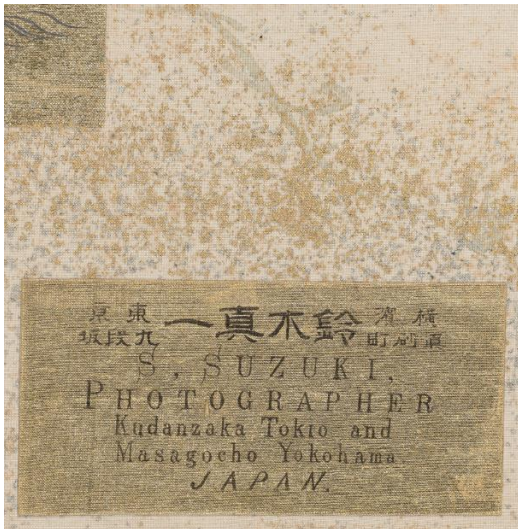 横濱
真砂町
鈴木真一
東京
九段坂
S. SUZUKI.
PHOTOGRAPHER
Kudanzaka Tokio and
Masagocho Yokohama.
JAPAN.